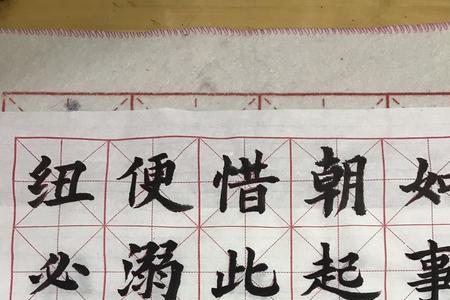 如事
朝起
惜此
便溺
纽必